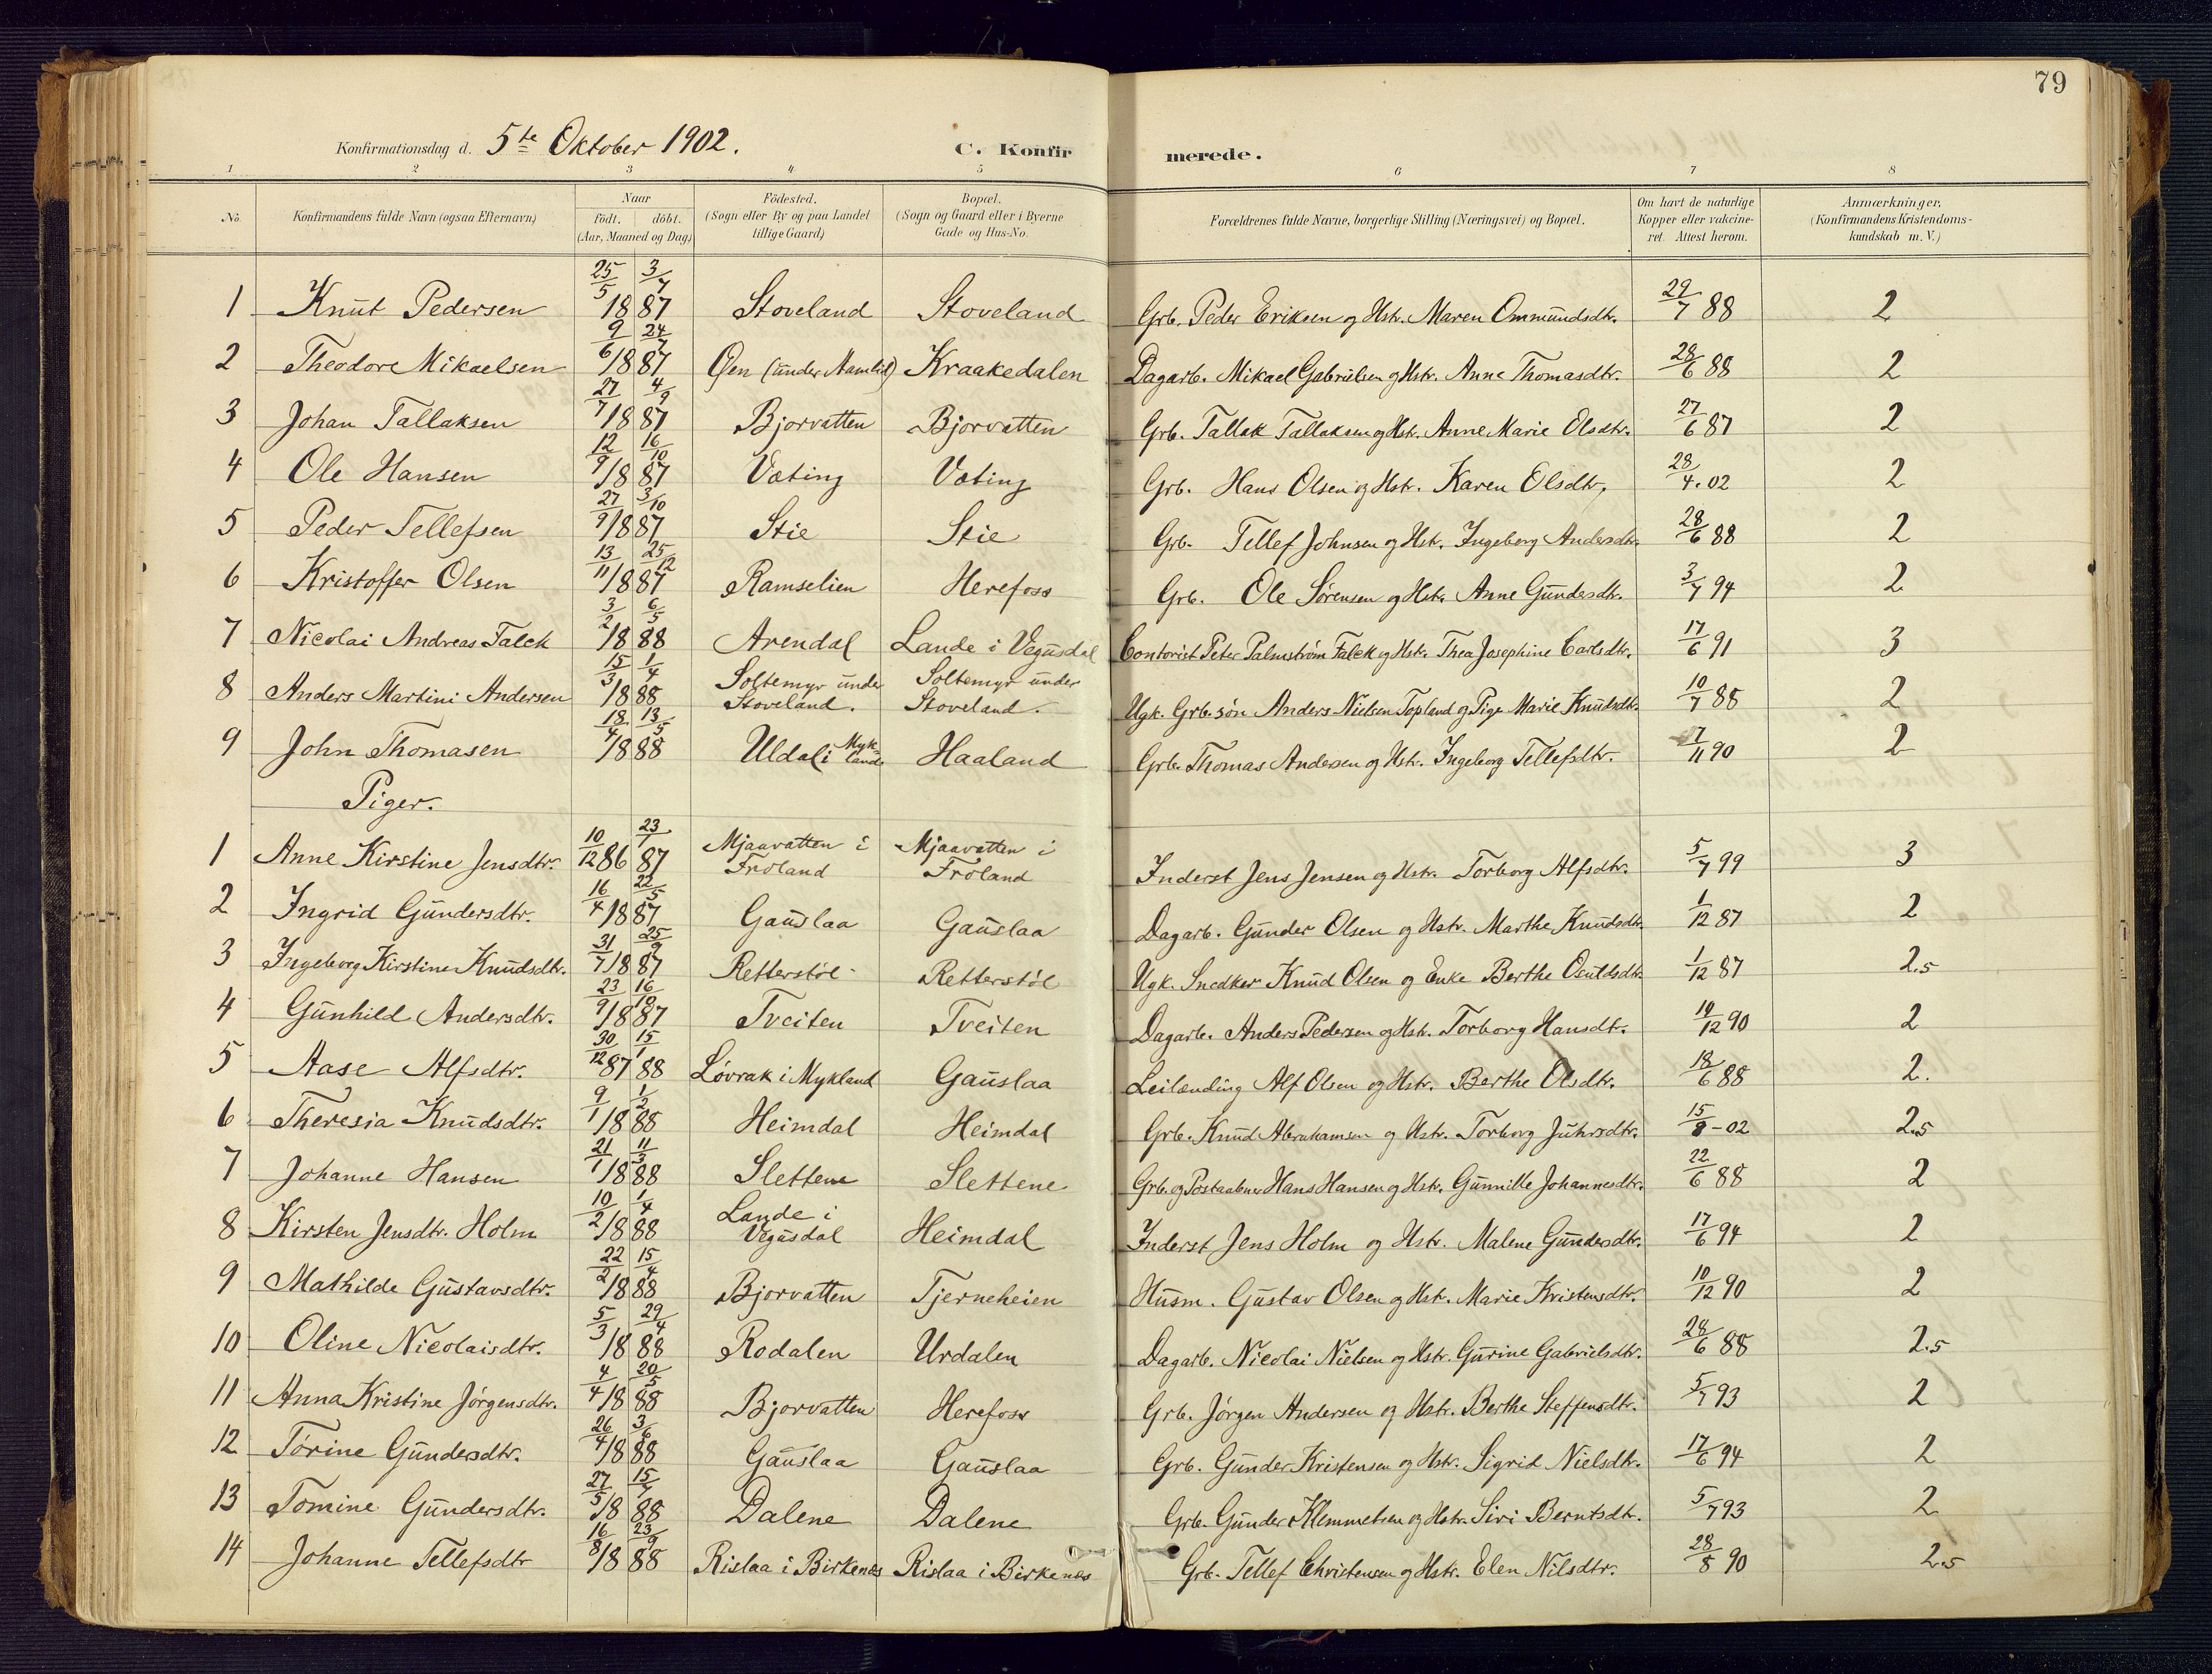 79
Konfirmationsdag d. 5te Oktober 1902. C. Konfirmerede.
1 2 3 4 5 6 7 8
No. Konfirmandens fulde Navn (ogsaa Efternavn) Naar födt. döbt. (Aar, Maaned og Dag) Födested. (Sogn eller By og paa Landet tillige Gaard) Bopæl. (Sogn og Gaard eller i Byerne Gade og Hus-No. Forældrenes fulde Navne, borgerlige Stilling (Næringsvei) og Bopæl. Om havt de naturlige Kopper eller vakcineret. Attest herom. Anmærkninger, (Konfirmandens Kristendomskundskab m. V.)
1 Knut Pedersen 25/5 1887 3/7 Stoveland Stoveland Grb. Peder Eriksen og Hstr. Maren Ommundsdtr. 29/7 88 2
2 Theodore Mikaelsen 9/6 1887 24/7 Øen (under Kraakedalen Dagarb. Mikael Gabrielsen og Hstr. Anne Thomasdtr. 28/6 88 2
3 Johan Tallaksen 27/7 1887 4/9 Bjorvatten Bjorvatten Grb. Tallak Tallaksen og Hstr. Anne Marie Olsdtr. 27/6 87 2
4 Ole Hansen 12/9 1887 16/10 Væting Væting Grb. Hans Olsen og Hstr. Karen Olsdtr. 28/4.02 2
5 Peder Tellefsen 27/9 1887 3/10 Stie Stie Grb. Tellef Johnsen og Hstr. Ingeborg Andersdtr. 28/6 88 2
6 Kristoffer Olsen 13/11 1887 25/12 Ramselien Herefoss Grb. Ole Sørensen og Hstr. Anne Gundersdtr. 3/7 94 2
7 Nicolai Andreas Falck 3/2 1888 6/5 Arendal Lande i Vegusdal Contorist Peter Palmstrøm Falck og Hstr. Thea Josephine Carlsdtr. 17/6 91 3
8 Anders Martini Andersen 15/3 1888 1/4 Soltemyr under Stoveland. Soltemyr under Stoveland. Ugk. Grb. søn Anders Nielsen Topland og Pige Marie Knudsdtr. 10/7 88 2
9 John Thomasen 18/4 1888 13/5 Uldal i Mykland Haaland Grb. Thomas Andersen og Hstr. Ingeborg Tellefsdtr. 7/11 90 2
Piger.
1 Anne Kirstine Jensdtr. 10/12 86 23/1 87 Mjaavatten i Froland Mjaavatten i Froland Inderst Jens Jensen og Hstr. Torborg Alfsdtr. 5/7 99 3
2 Ingrid Gundersdtr. 16/4 1887 22/5 Gauslaa Gauslaa Dagarb. Gunder Olsen og Hstr. Marthe Knudsdtr. 1/12 87 2
3 Ingeborg Kirstine Knudsdtr. 31/7 1887 25/9 Retterstøl Retterstøl Ugk. Snedker Knud Olsen og Enke Berthe 1/12 87 2.5
4 Gunhild Andersdtr. 23/9 1887 16/10 Tveiten Tveiten Dagarb. Anders Pedersen og Hstr. Torborg Hansdtr. 10/12 90 2
5 Aase Alfsdtr. 30/12 87 15/1 88 Løvrak i Mykland Gauslaa Leilænding Alf Olsen og Hstr. Berthe Olsdtr. 18/6 88 2.
6 Theresia Knudsdtr. 9/1 1888 1/2 Heimdal Heimdal Grb. Knud Abrahamsen og Hstr. Torborg 15/8-02 2.5
7 Johanne Hansen 21/1 1888 11/3 Slettene Slettene Grb. og Postaabner Hans Hansen og Hstr. Gunnille Johannesdtr. 22/6 88 2
8 Kirsten Jensdtr. Holm 10/2 1888 1/4 Lande i Vegusdal Heimdal Inderst Jens Holm og Hstr. Malene Gundersdtr. 17/6 94 2
9 Mathilde Gustavsdtr. 22/2 1888 15/4 Bjorvatten Tjerneheien Husm. Gustav Olsen og Hstr. Marie Kristensdtr. 10/12 90 2
10 Oline Nicolaisdtr. 5/3 1888 29/4 Rodalen Urdalen Dagarb. Nicolai Nielsen og Hstr. Gurine Gabrielsdtr. 28/6 88 2.5
11 Anna Kristine Jørgensdtr. 4/4 1888 20/5 Bjorvatten Herefoss Grb. Jørgen Andersen og Hstr. Berthe Steffensdtr. 5/7 93 2
12 Torine Gundersdtr. 26/4 1888 3/6 Gauslaa Gauslaa Grb. Gunder Kristensen og Hstr. Sigrid Nielsdtr. 17/6 94 2
13 Tomine Gundersdtr. 27/5 1888 15/7 Dalene Dalene Grb. Gunder Klemmetsen og Hstr. Siri Berntsdtr. 5/7 93 2
14 Johanne Tellefsdtr 16/8 1888 23/9 Rislaa i Birkenæs Rislaa i Birkenæs Grb. Tellef Christensen og Hstr. Elen Nilsdtr. 28/8 90 2.5